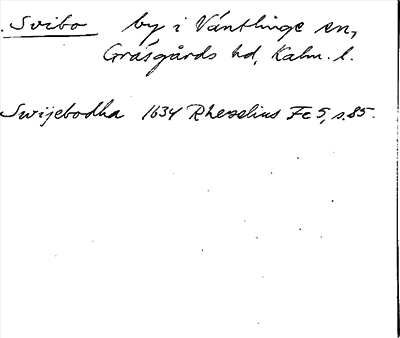 Svibo by i Ventlinge sn,
Gräsgårds hd, Kalm. l.
Swijebodha 1634 Rhezelius Fc 5, s. 85.